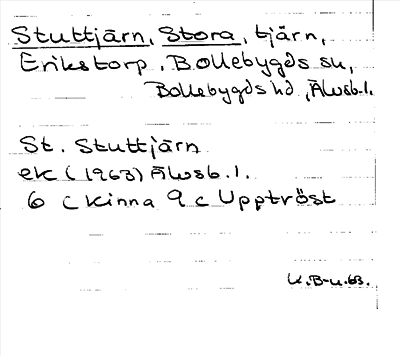 Stuttjärn, Stora, tjärn,
Erikstorp, Bollebygds sn,
Bollebygds hd, Älvsb.l.
St. Stuttjärn
ek (1963) Älvsb. l.
6 c Kinna 9 c Upptröst
K.B-u.63.